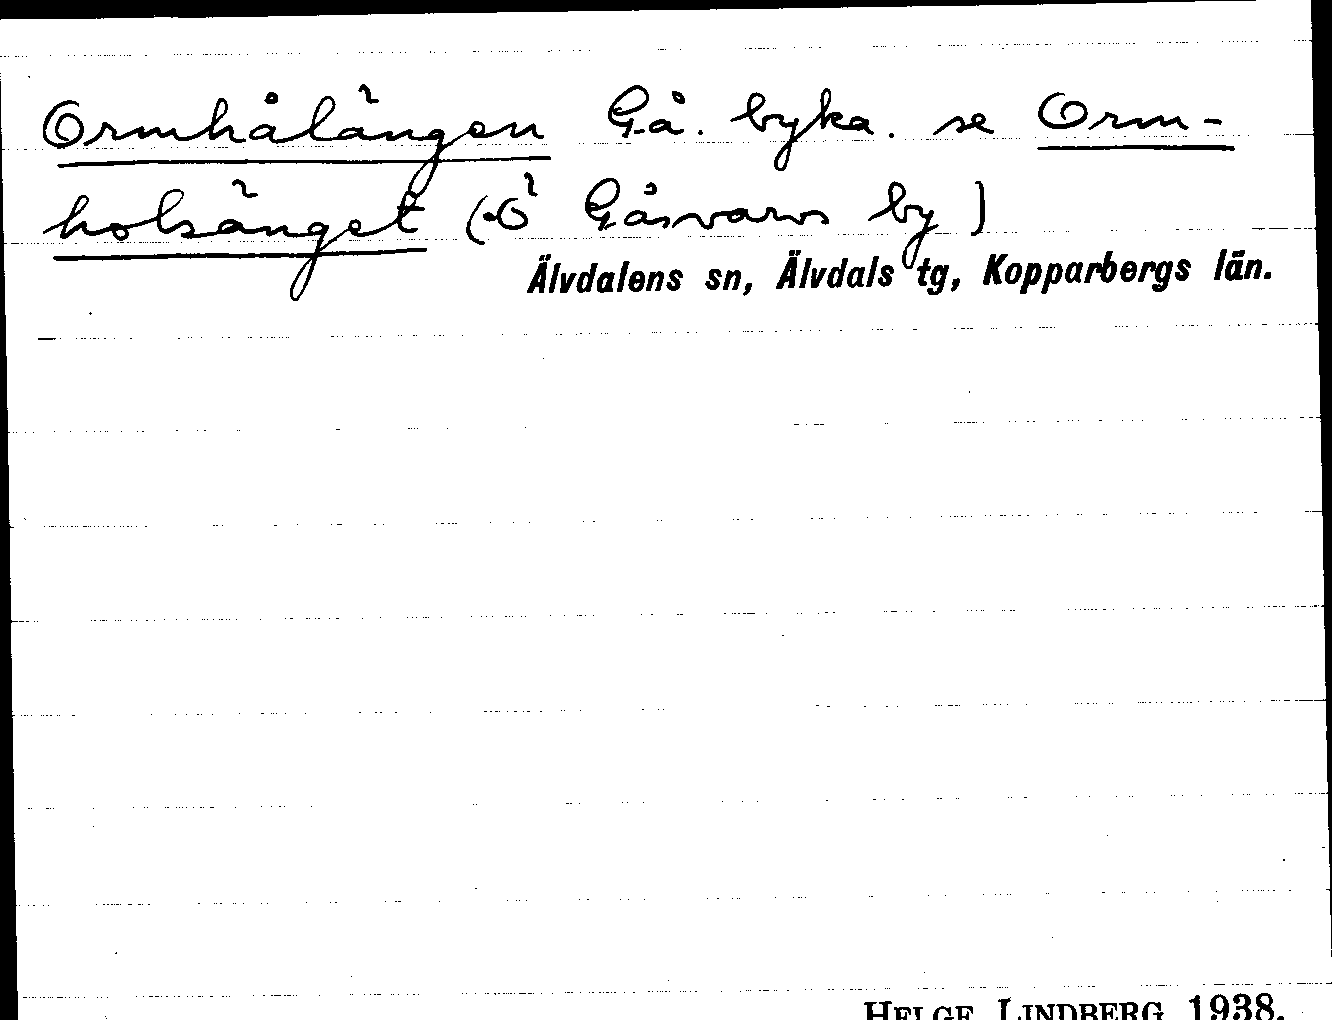 Ormhålängen Gå. byka. se Orm-
holsänget (Ö Gåsvarvs by)
Älvdalens sn, Älvdals tg, Kopparbergs län.
HELGE LINDBERG 1938.